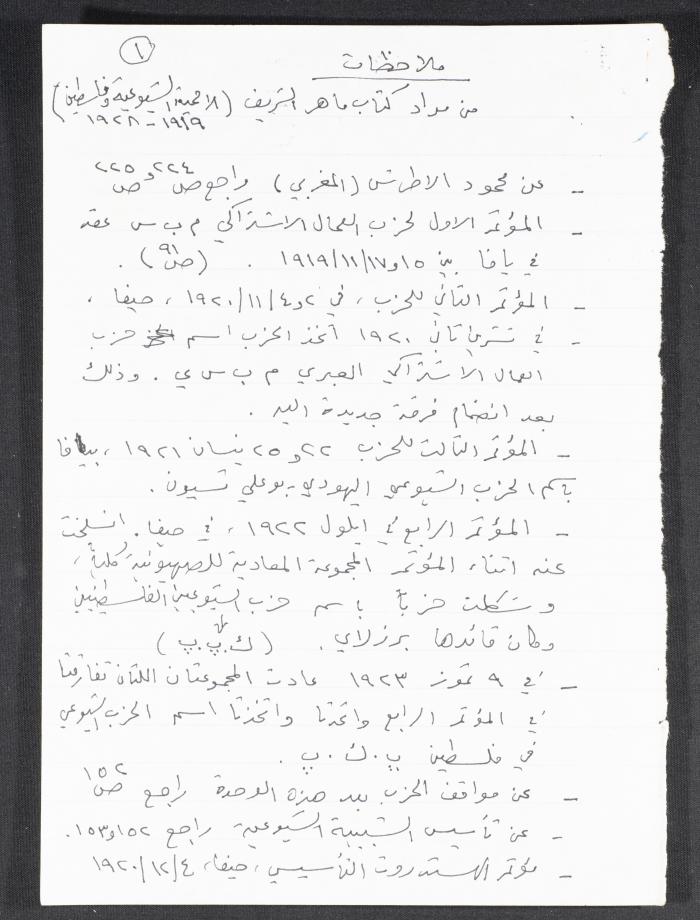 ١
ملاحظات
من مواد كتاب ماهر الشريف (الاممية الشيوعية وفلسطين
١٩١٩ - ١٩٢٨)
- عن محمود الاطرش (المغربي) راجع ص ٢٢٤ و ص ٢٢٥
- المؤتمر الاول لحزب العمال الاشتراكي م ب س عقد
في يافا بين ١٥ و ١٧/١١/١٩١٩ . (ص ٩١) .
- المؤتمر الثاني للحزب ، في ٢ و ٤/١١/١٩٢٠ ، حيفا ،
- في تشرين ثاني ١٩٢٠ اتخذ الحزب اسم حزب
العمال الاشتراكي العبري م ب س ي . وذلك
بعد انضمام فرقة جديدة اليه .
- المؤتمر الثالث للحزب ٢٢ و ٢٥ نيسان ١٩٢١ ، بيافا
باسم الحزب الشيوعي اليهودي - بوعلي تسيون .
- المؤتمر الرابع في ايلول ١٩٢٢ ، في حيفا . انسلخت
عنه اثناء المؤتمر المجموعة المعادية للصهيونية كلياً ،
وشكلت حزباً باسم حزب الشيوعيين الفلسطينيين
وكان قائدها برزلاي . (ك . پ . پ)
- في ٩ تموز ١٩٢٣ عادت المجموعتان اللتان تفارقتا
في المؤتمر الرابع واتحدتا واتخذتا اسم الحزب الشيوعي
في فلسطين پ . ك . پ .
- عن مواقف الحزب بعد هذه الوحدة راجع ص ١٥٢
- عن تأسيس الشبيبة الشيوعية راجع ١٥٢ و ١٥٣ .
- مؤتمر الهستدروت التأسيسي ، حيفا ، ٤/١٢/١٩٢٠